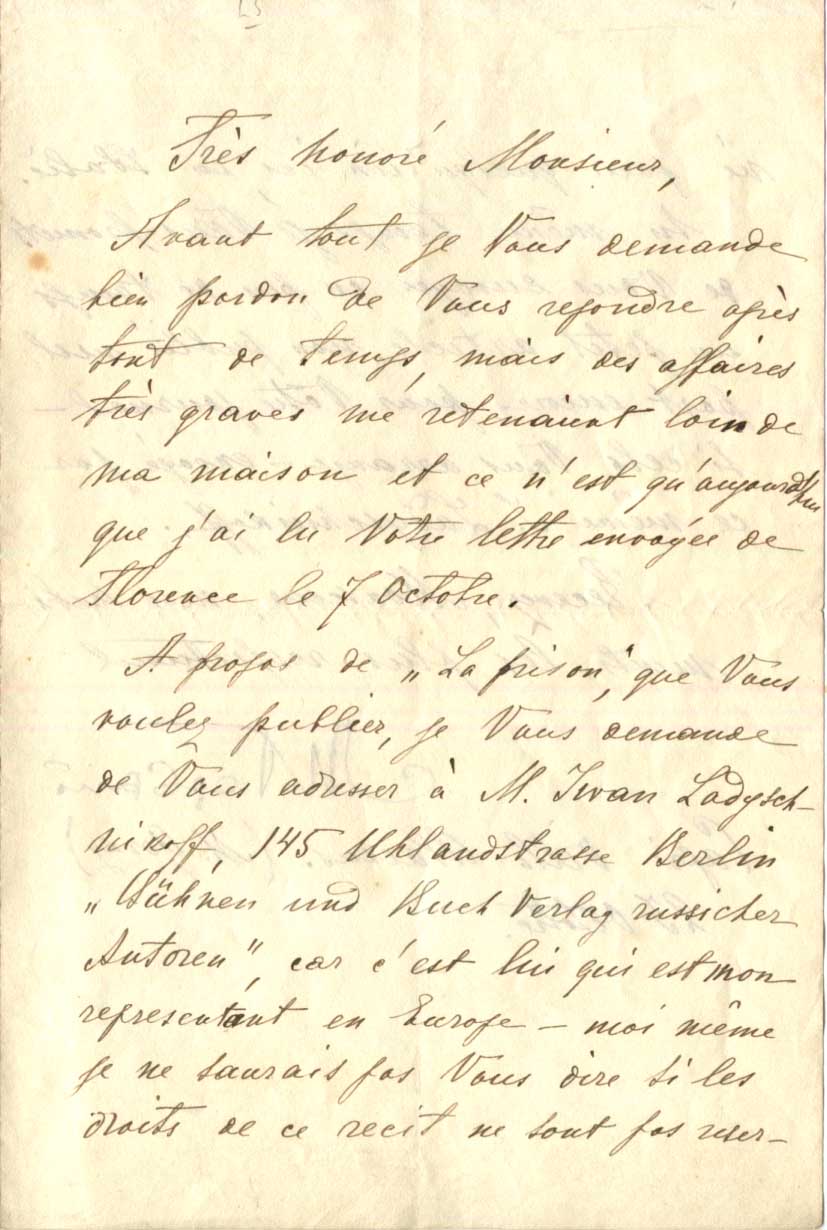 Très honoré Monsieur,
Avant tout je Vous demande
bien pardon de Vous repondre après
tant de temps, mais des affaires
très graves me retenaient loin de
ma maison et ce n'est qu'aujourd'hui
que j'ai lu Votre lettre envoyée de
Florence le 7 Octobre.
A propos de „La prison", que Vous
voulez publier, je Vous demande
de Vous adresser à M. Iwan Ladysch-
nikoff, 145 Uhlandstrasse Berlin
„Bühnen und Buch Verlag russicher
Autoren", car c'est lui qui est mon
representant en Europe – moi même
je ne saurais pas Vous dire si les
droits de ce recit ne sont pas reser-